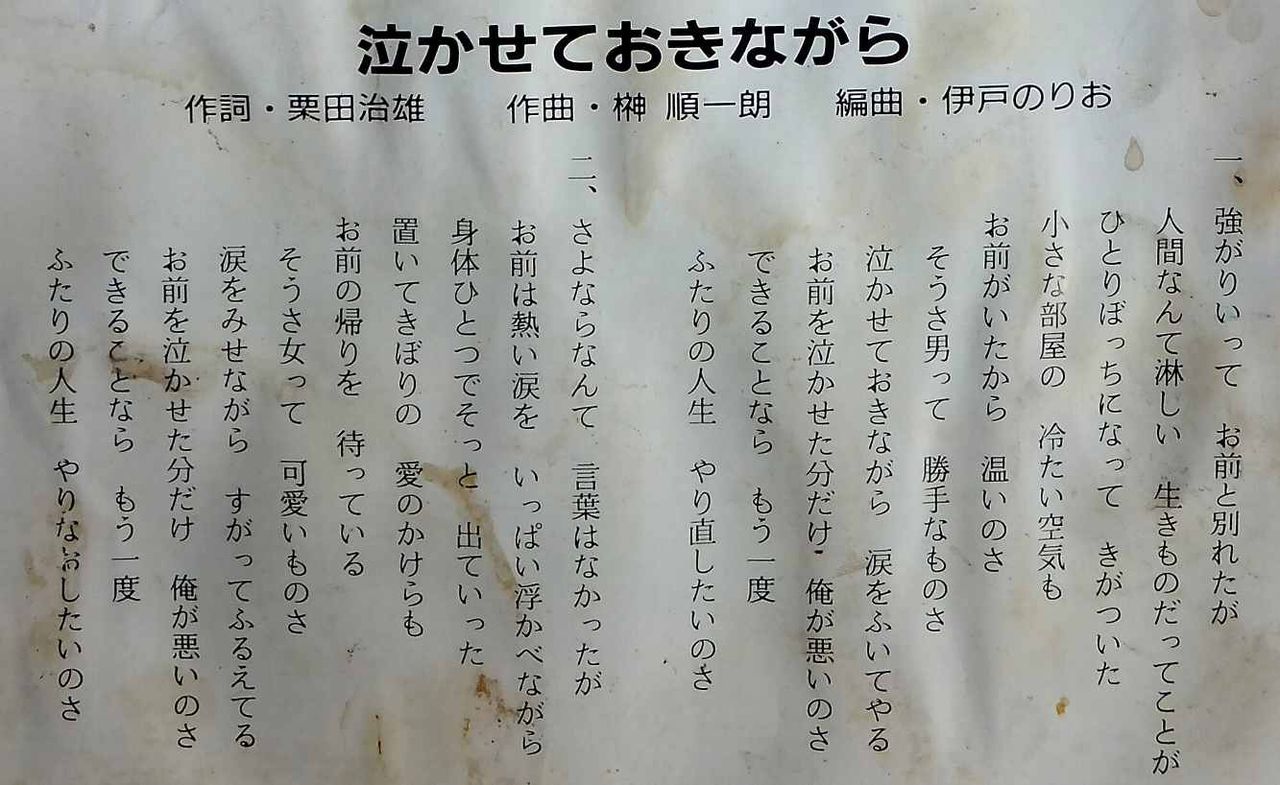 泣かせておきながら
作詞・栗田治雄　作曲・榊 順一朗　編曲・伊戸のりお
一、強がりいって　お前と別れたが
人間なんて淋しい　生きものだってことが
ひとりぼっちになって　きがついた
小さな部屋の　冷たい空気も
お前がいたから　温いのさ
そうさ男って　勝手なものさ
泣かせておきながら　涙をふいてやる
お前を泣かせた分だけ　俺が悪いのさ
できることなら　もう一度
ふたりの人生　やり直したいのさ
二、さよならなんて　言葉はなかったが
お前は熱い涙を　いっぱい浮かべながら
身体ひとつでそっと　出ていった
置いてきぼりの　愛のかけらも
お前の帰りを　待っている
そうさ女って　可愛いものさ
涙をみせながら　すがってふるえてる
お前を泣かせた分だけ　俺が悪いのさ
できることなら　もう一度
ふたりの人生　やりなおしたいのさ